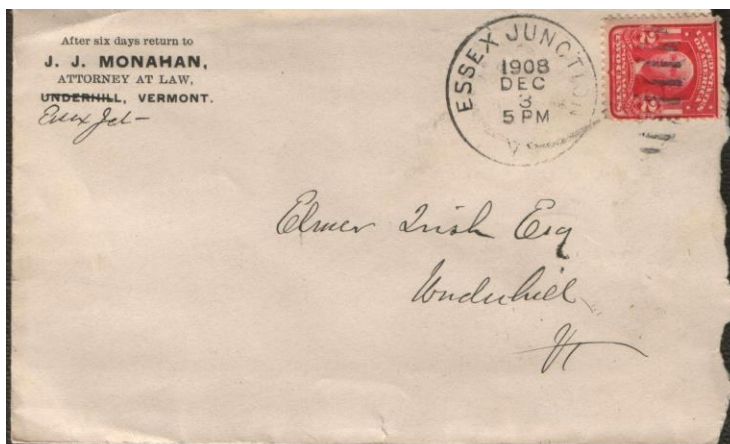 After six days return to
J. J. MONAHAN,
ATTORNEY AT LAW,
UNDERHILL, VERMONT.
Essex Jct —
ESSEX JUNCTION
1908
DEC
3
5 PM
V
Elmer Irish Esq
Underhill
Vt